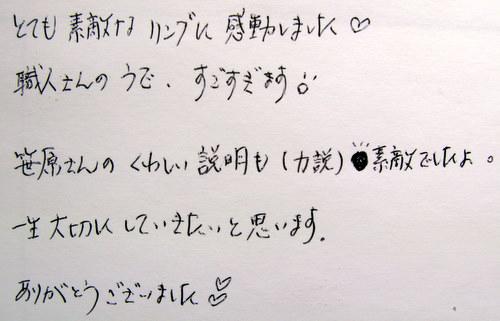 とても素敵なリングに感動しました♡
職人さんのうで、すごすぎます。
笹原さんのくわしい説明も(力説)素敵でしたよ。
一生大切にしていきたいと思います。
ありがとうございました♡